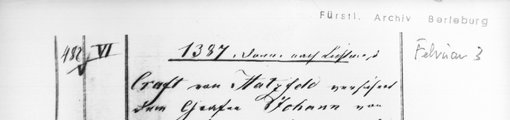 Fürstl. Archiv Berleburg
482 VI
1387. Donn. nach Lichtmeß
Februar 3
Craft von Hatzfeld versichert
dem Grafen Johann von